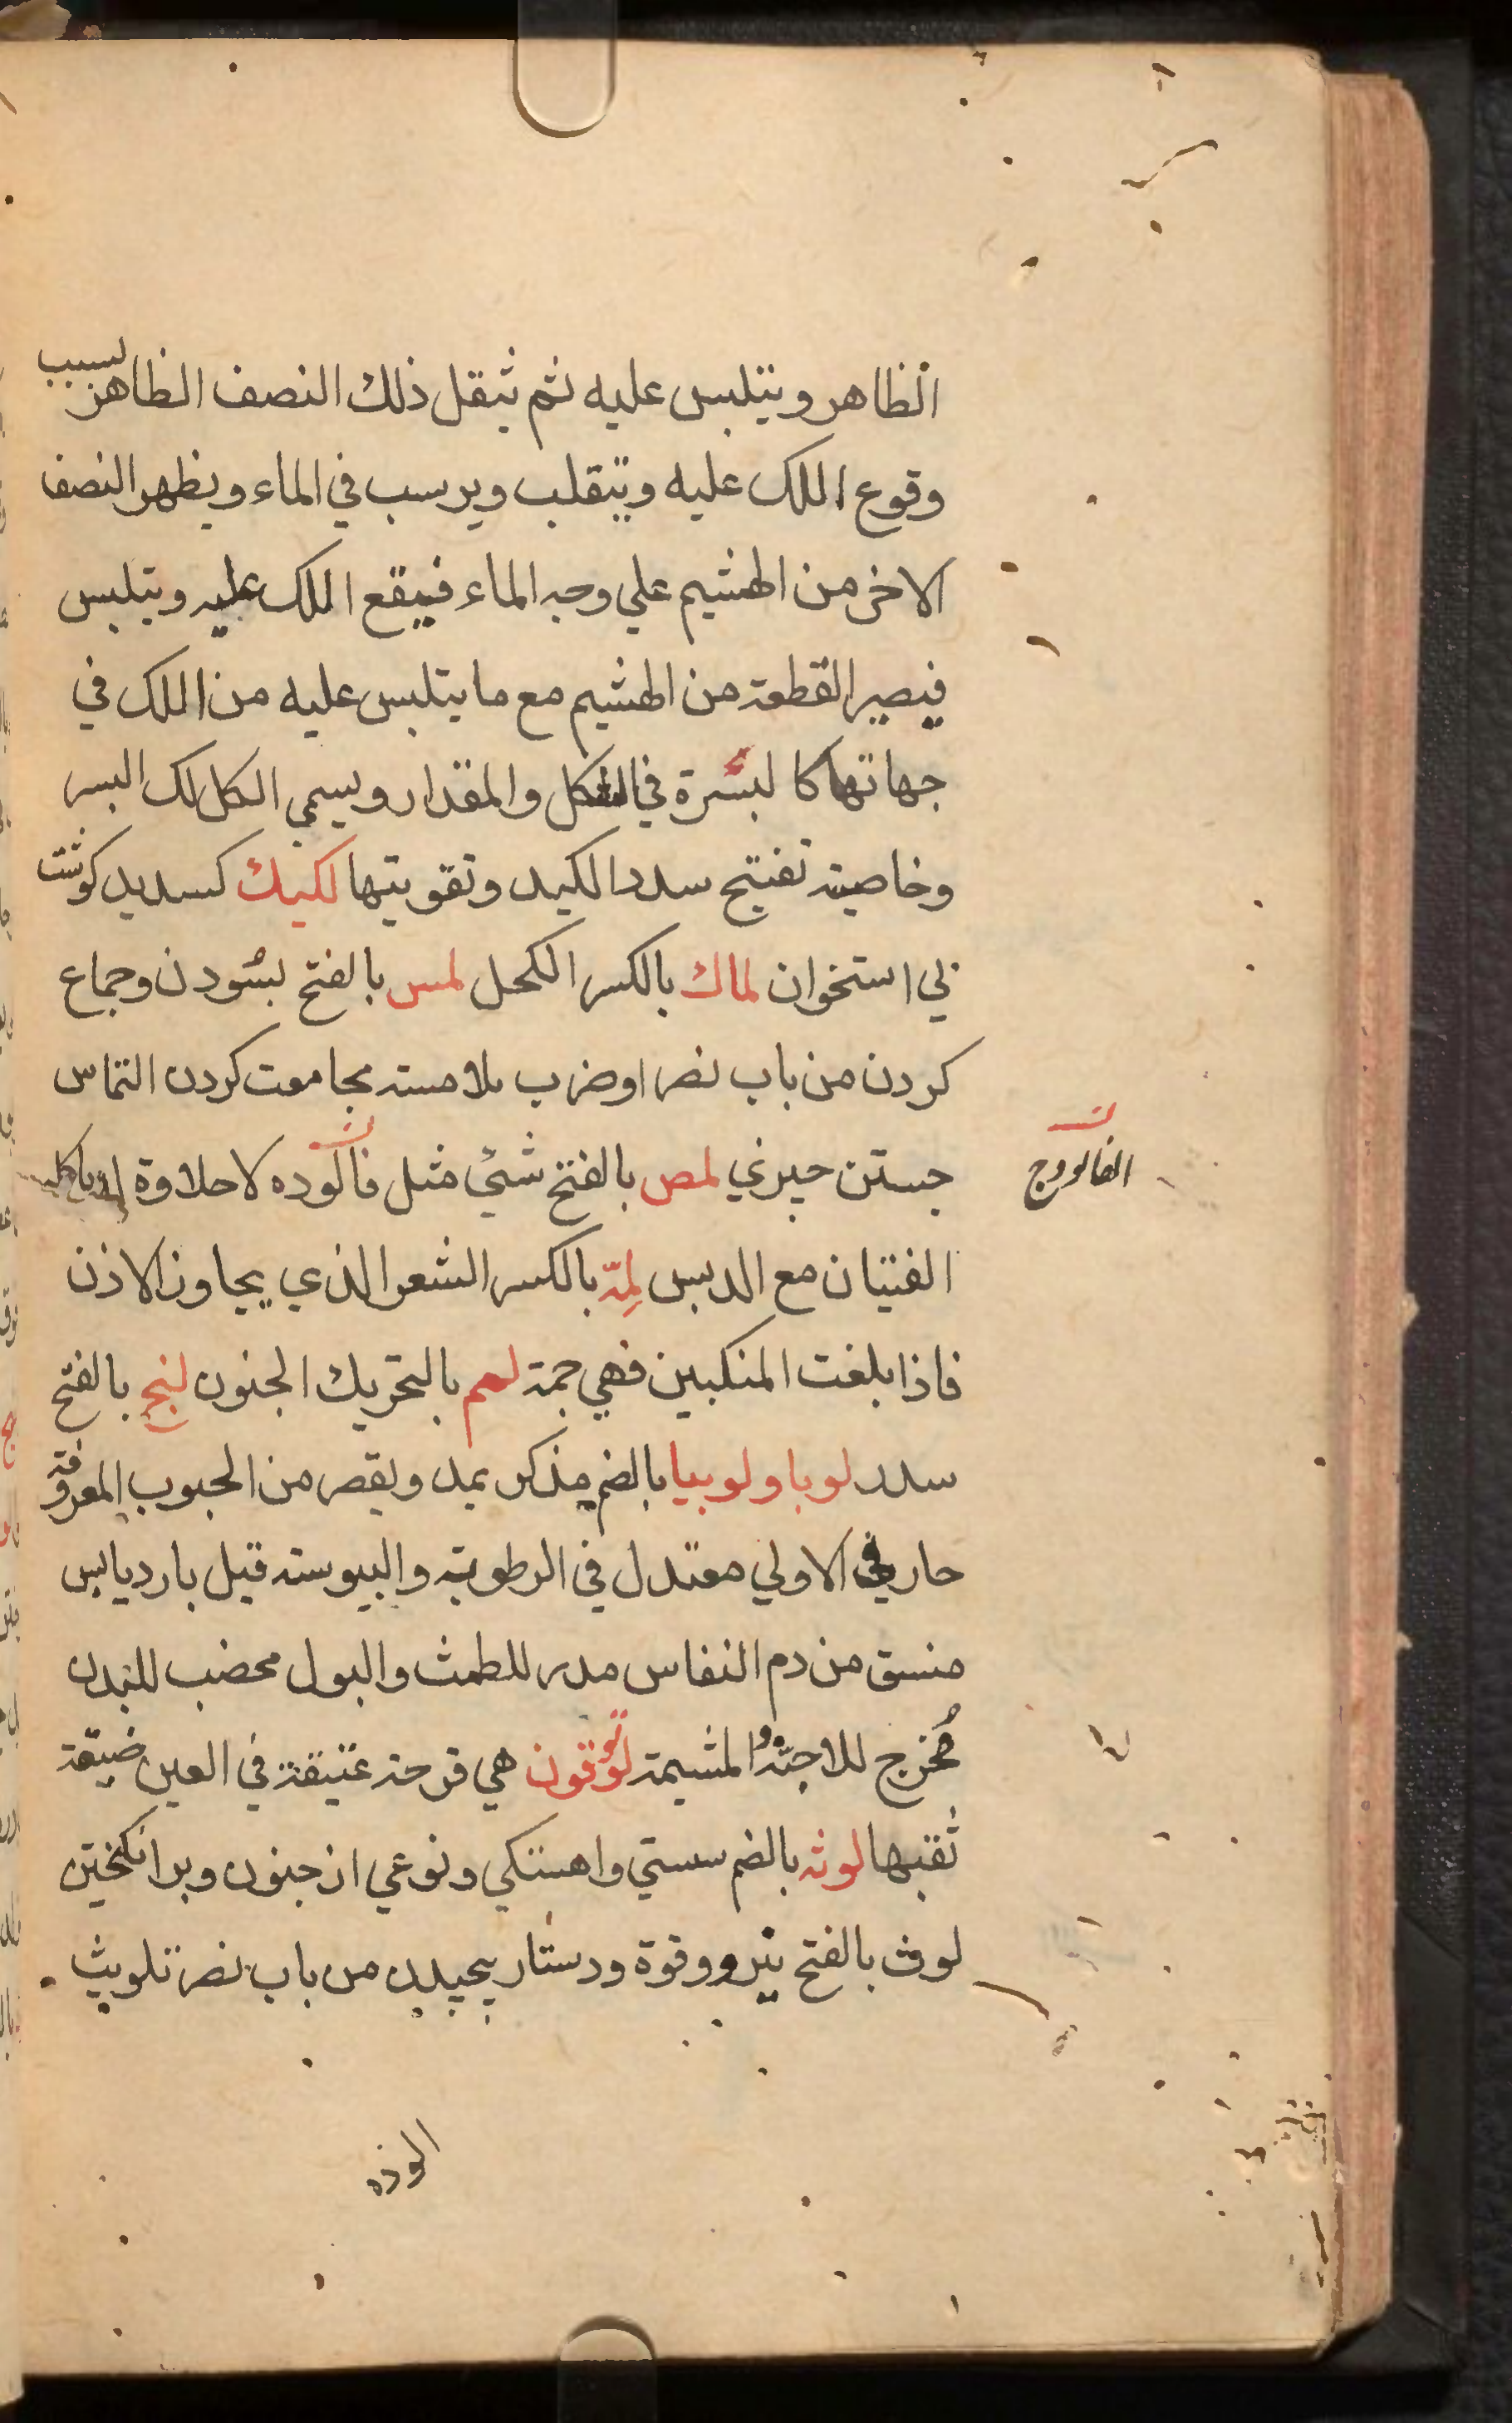 الظاهر ويتلبس عليه ثم يثقل ذلك النصف الظاهر لسبب
وقوع اللك عليه وينقلب ويرسب في الماء ويظهر النصف
الاخر من الهشيم علي وجه الماء فيقع اللك عليه ويتلبس
فيصير القطعة من الهشيم مع ما يتلبس عليه من اللك في
جهاتها كالبسرة في الشكل والمقدار ويسمي الكل لك البسر
وخاصيته تفتيح سدد الكبد وتقويتها لكيك كسديد كوشت
بي استخوان لماك بالكسر الكحل لمس بالفتح بسودن وجماع
كردن من باب نصر او ضرب ملامسته مجامعت كردن التماس
جستن چيزي لمص بالفتح شيئ مثل فالوده لا حلاوة له ياكله
الفالودج
الفتيان مع الدبس لِمّة بالكسر الشعر الذي يجاوز الاذن
فاذا بلغت المنكبين فهي جمة لمم بالتحريك الجنون لنج بالفتح
سدد لوبا ولوبيا بالضم مذكر يمد ويقصر من الحبوب المعروفة
حار في الاولي معتدل في الرطوبة واليبوسته قيل بارد يابس
منسق من دم النفاس مدر للطمث والبول مخصب للبدن
مُخرج للاجنّة والمشيمة لوقون هي قرحة عتيقة في العين ضيقة
ثقبها لوثه بالضم سستي واهستكي ونوعي از جنون وبرانكختن
لوث بالفتح نيرو وقوة ودستار پيچيدن من باب نصر تلويث
الوذه